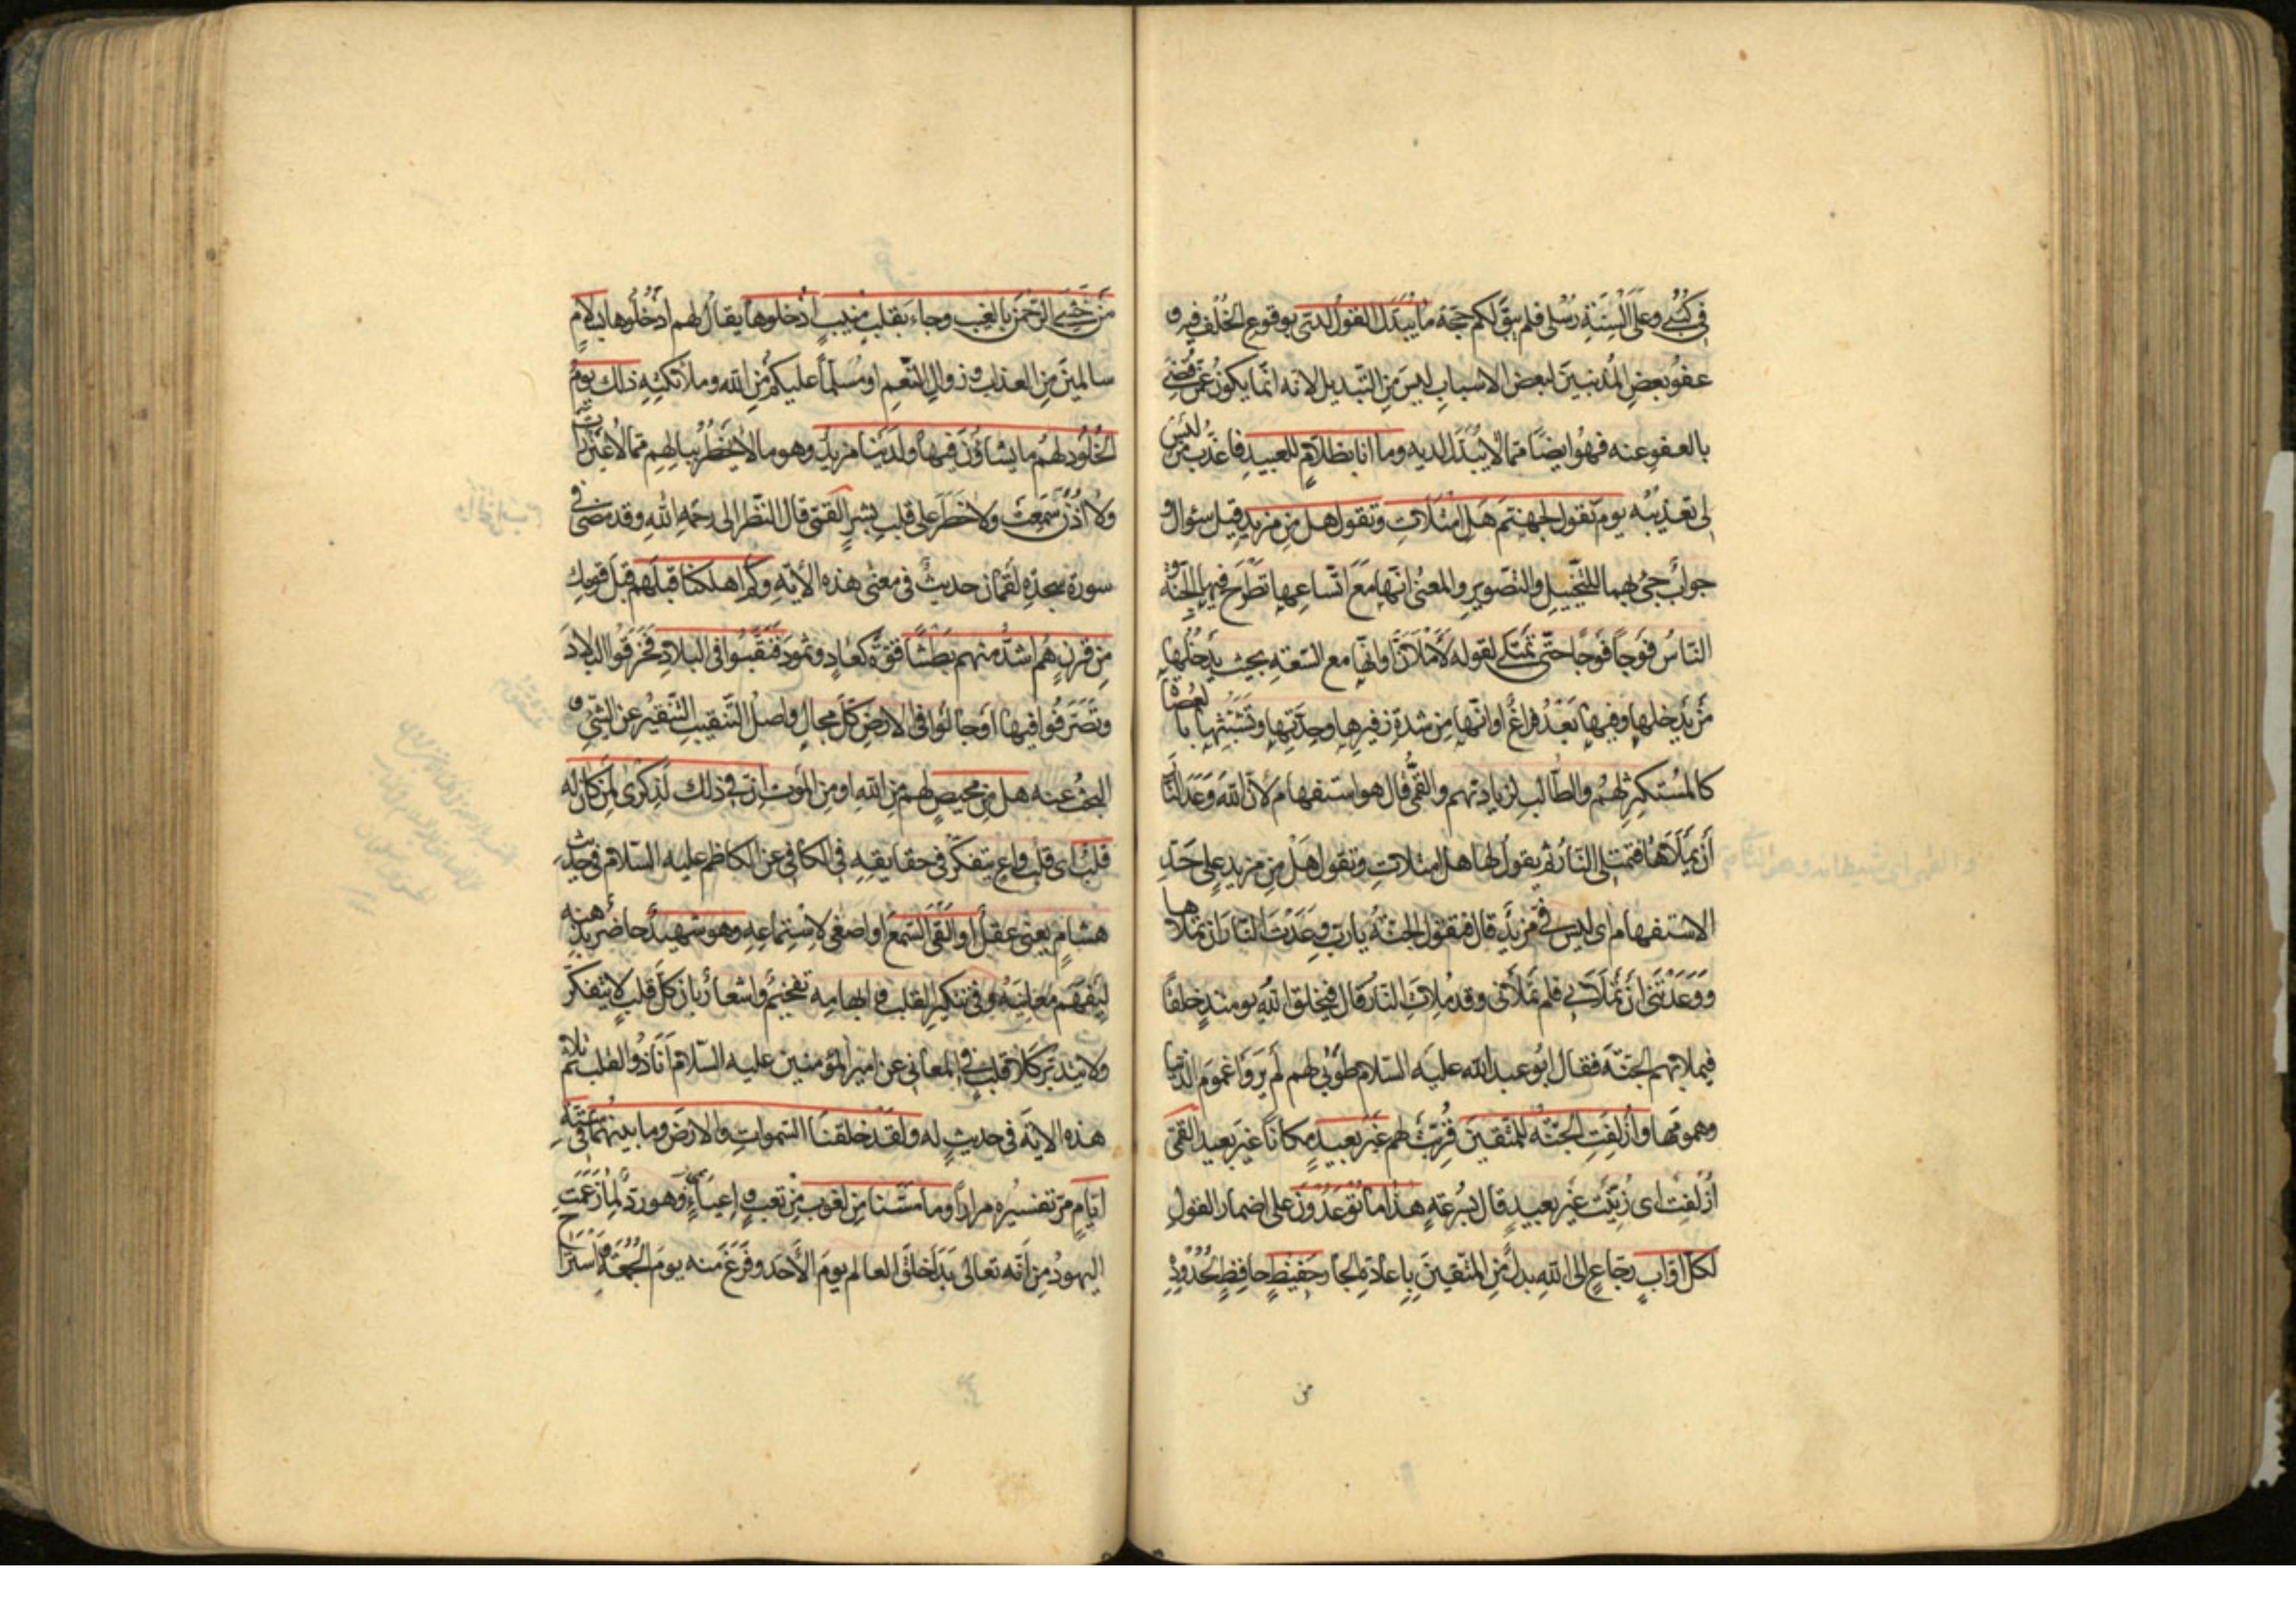 في كتبي وعلى السنة رسلي فلم يبق لكم حجة ما يبدل القول لدي بوقوع الخلف فيه و
عفو بعض المذنبين لبعض الاسباب ليس من التبديل لانه انما يكون عمن قضى
بالعفو عنه فهو ايضا مما لا يبدل لديه وما انا بظلام للعبيد فاعذب من ليس
لي تعذيبه يوم نقول لجهنم هل امتلات وتقول هل من مزيد قيل سؤال و
جواب جئ بهما للتخييل والتصوير والمعنى انها مع اتساعها تطرح فيها الجنة و
الناس فوجا فوجا حتى تمتلى لقوله لأملأن او انها مع السعة بحيث يدخلها
من يدخلها وفيها بعد فراغ او انها من شدة زفيرها وحدتها وتشبثها بالعصاة
كالمستكثر لهم والطالب لزيادتهم والقمي قال هو استفهام لان الله وعد النار
أن يملأها فتمتلى النار ثم يقول لها هل امتلات وتقول هل من مزيد على حد
الاستفهام اى ليس في مزيد قال فتقول الجنة يا رب وعدت النار ان تملاها
ووعدتني أن تملأني فلم تملأني وقد ملات النار قال فيخلق الله يومئذ خلقا
فيملا بهم الجنة فقال ابو عبد الله عليه السلام طوبى لهم لم يروا غموم الدنيا
وهمومها وأزلفت الجنة للمتقين قربت لهم غير بعيد مكانا غير بعيد القمي
أزلفت اى زينت غير بعيد قال بسرعة هذا ما توعدون على اضمار القول
لكل اواب رجاع الى الله بدل من المتقين باعادة الجار حفيظ حافظ لحدوده
من
من خشي الرحمن بالغيب وجاء بقلب منيب ادخلوها يقال لهم ادخلوها بسلام
سالمين من العذاب وزوال النعم او مسلما عليكم من الله وملائكته ذلك يوم
الخلود لهم ما يشاؤن فيها ولدينا مزيد وهو ما لا يخطر ببالهم مما لا عين رات
ولا أذن سمعت ولا خطر على قلب بشر القمي قال النظر الى رحمة الله وقد مضى في
سورة سجدة لقمان حديث في معنى هذه الآية وكم اهلكنا قبلهم قبل قومك
من قرن هم اشد منهم بطشا قوة كعاد وثمود فنقبوا في البلاد فخرقوا البلاد
وتصرفوا فيها او جالوا في الارض كل مجال واصل التنقيب التنقير عن الشئ و
البحث عنه هل من محيص لهم من الله او من الموت ان في ذلك لذكرى لمن كان له
قلب اى قلب واع يتفكر في حقايقه في الكافي عن الكاظم عليه السلام في حديث
هشام يعني عقل أو القى السمع او اصغى لاستماعه وهو شهيد حاضر بذهنه
ليفهم معانيه وفي تنكير القلب وابهامه تفخيم واشعار بان كل قلب لا يتفكر
ولا يتدبر كلا قلب في المعاني عن امير المؤمنين عليه السلام أنا ذو القلب ثم تلا
هذه الاية في حديث له ولقد خلقنا السموات والارض وما بينهما في ستة
ايام مر تفسيره مرارا وما مسنا من لغوب من تعب و إعياء وهو رد لما زعمت
اليهود من أنه تعالى بدأ خلق العالم يوم الأحد وفرغ منه يوم الجمعة واستراح